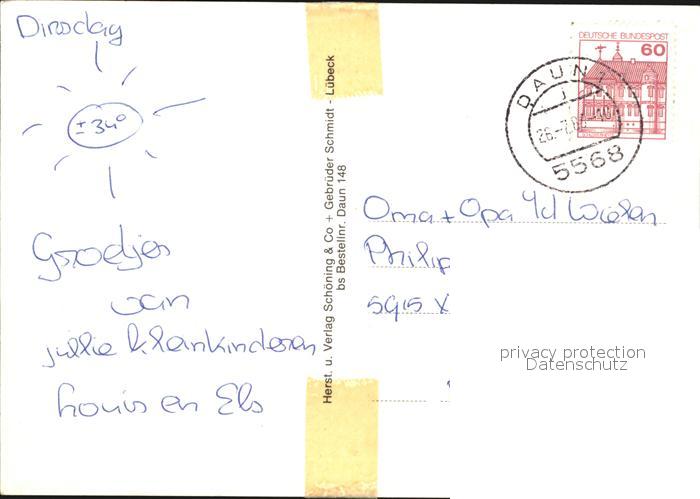 Dinsdag
± 34°
Groetjes
van
jullie kleinkinderen
Louis en Els
Herst. u. Verlag Schöning & Co + Gebrüder Schmidt - Lübeck
bs Bestellnr. Daun 148
DEUTSCHE BUNDESPOST
60
DAUN 1
5568
Oma + Opa
Philip
5915
privacy protection
Datenschutz